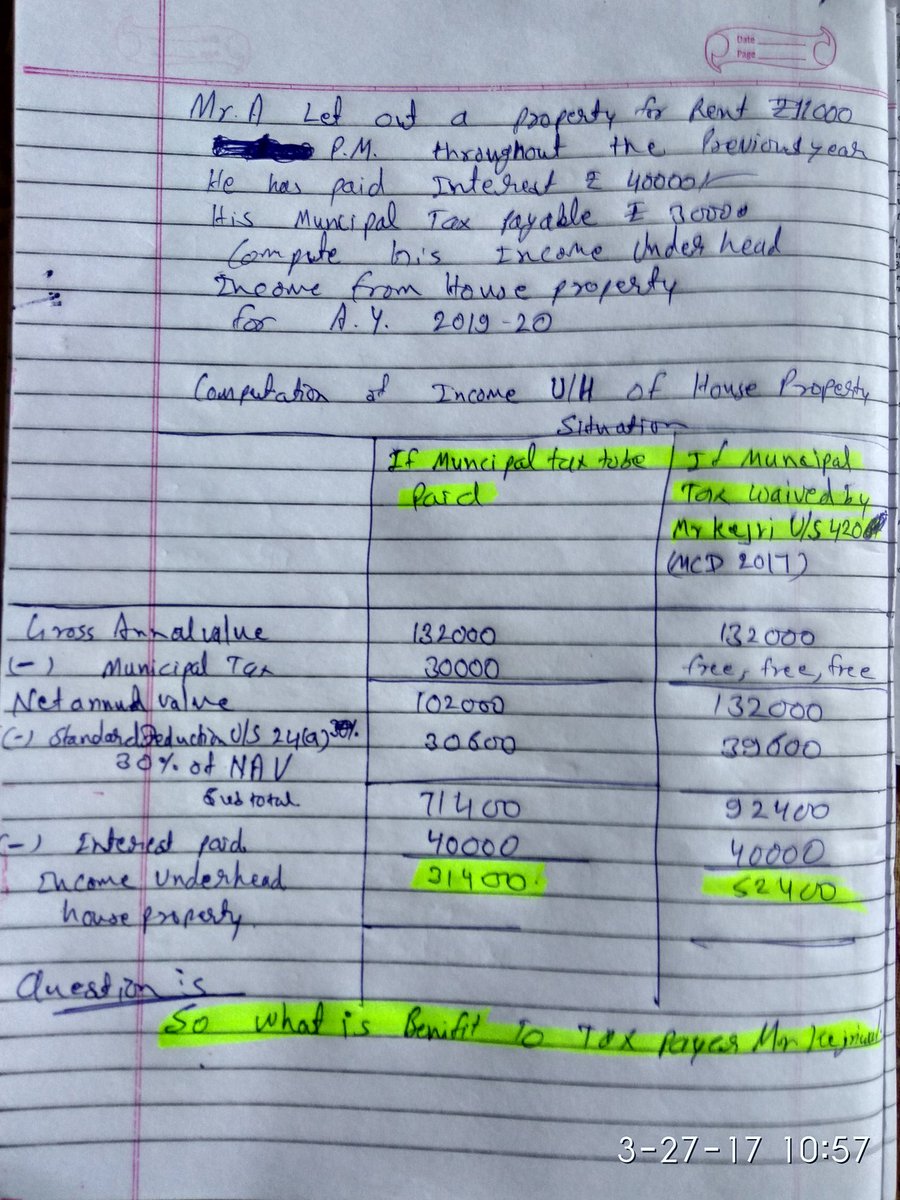 Date
Page
Mr. A Let out a property for Rent ₹11000
P.M. throughout the Previous year
He has paid Interest ₹ 40000/-
His Muncipal Tax Payable ₹ 30000
Compute his Income Under head
Income from House property
for A.Y. 2019-20
Computation of Income U/H of House Property
Situation
If Muncipal tax to be paid
If Muncipal Tax waived by Mr Kejri U/S 420
(MCD 2017)
Gross Annal value 132000 132000
(-) Municipal Tax 30000 free, free, free
Net annual value 102000 132000
(-) Standard Deduction U/S 24(a) 30600 39600
30% of NAV
Sub total 71400 92400
(-) Interest paid 40000 40000
Income Under head 31400 52400
house property
Question is
So what is Benifit to Tax payer Mr Kejriwal
3-27-17 10:57